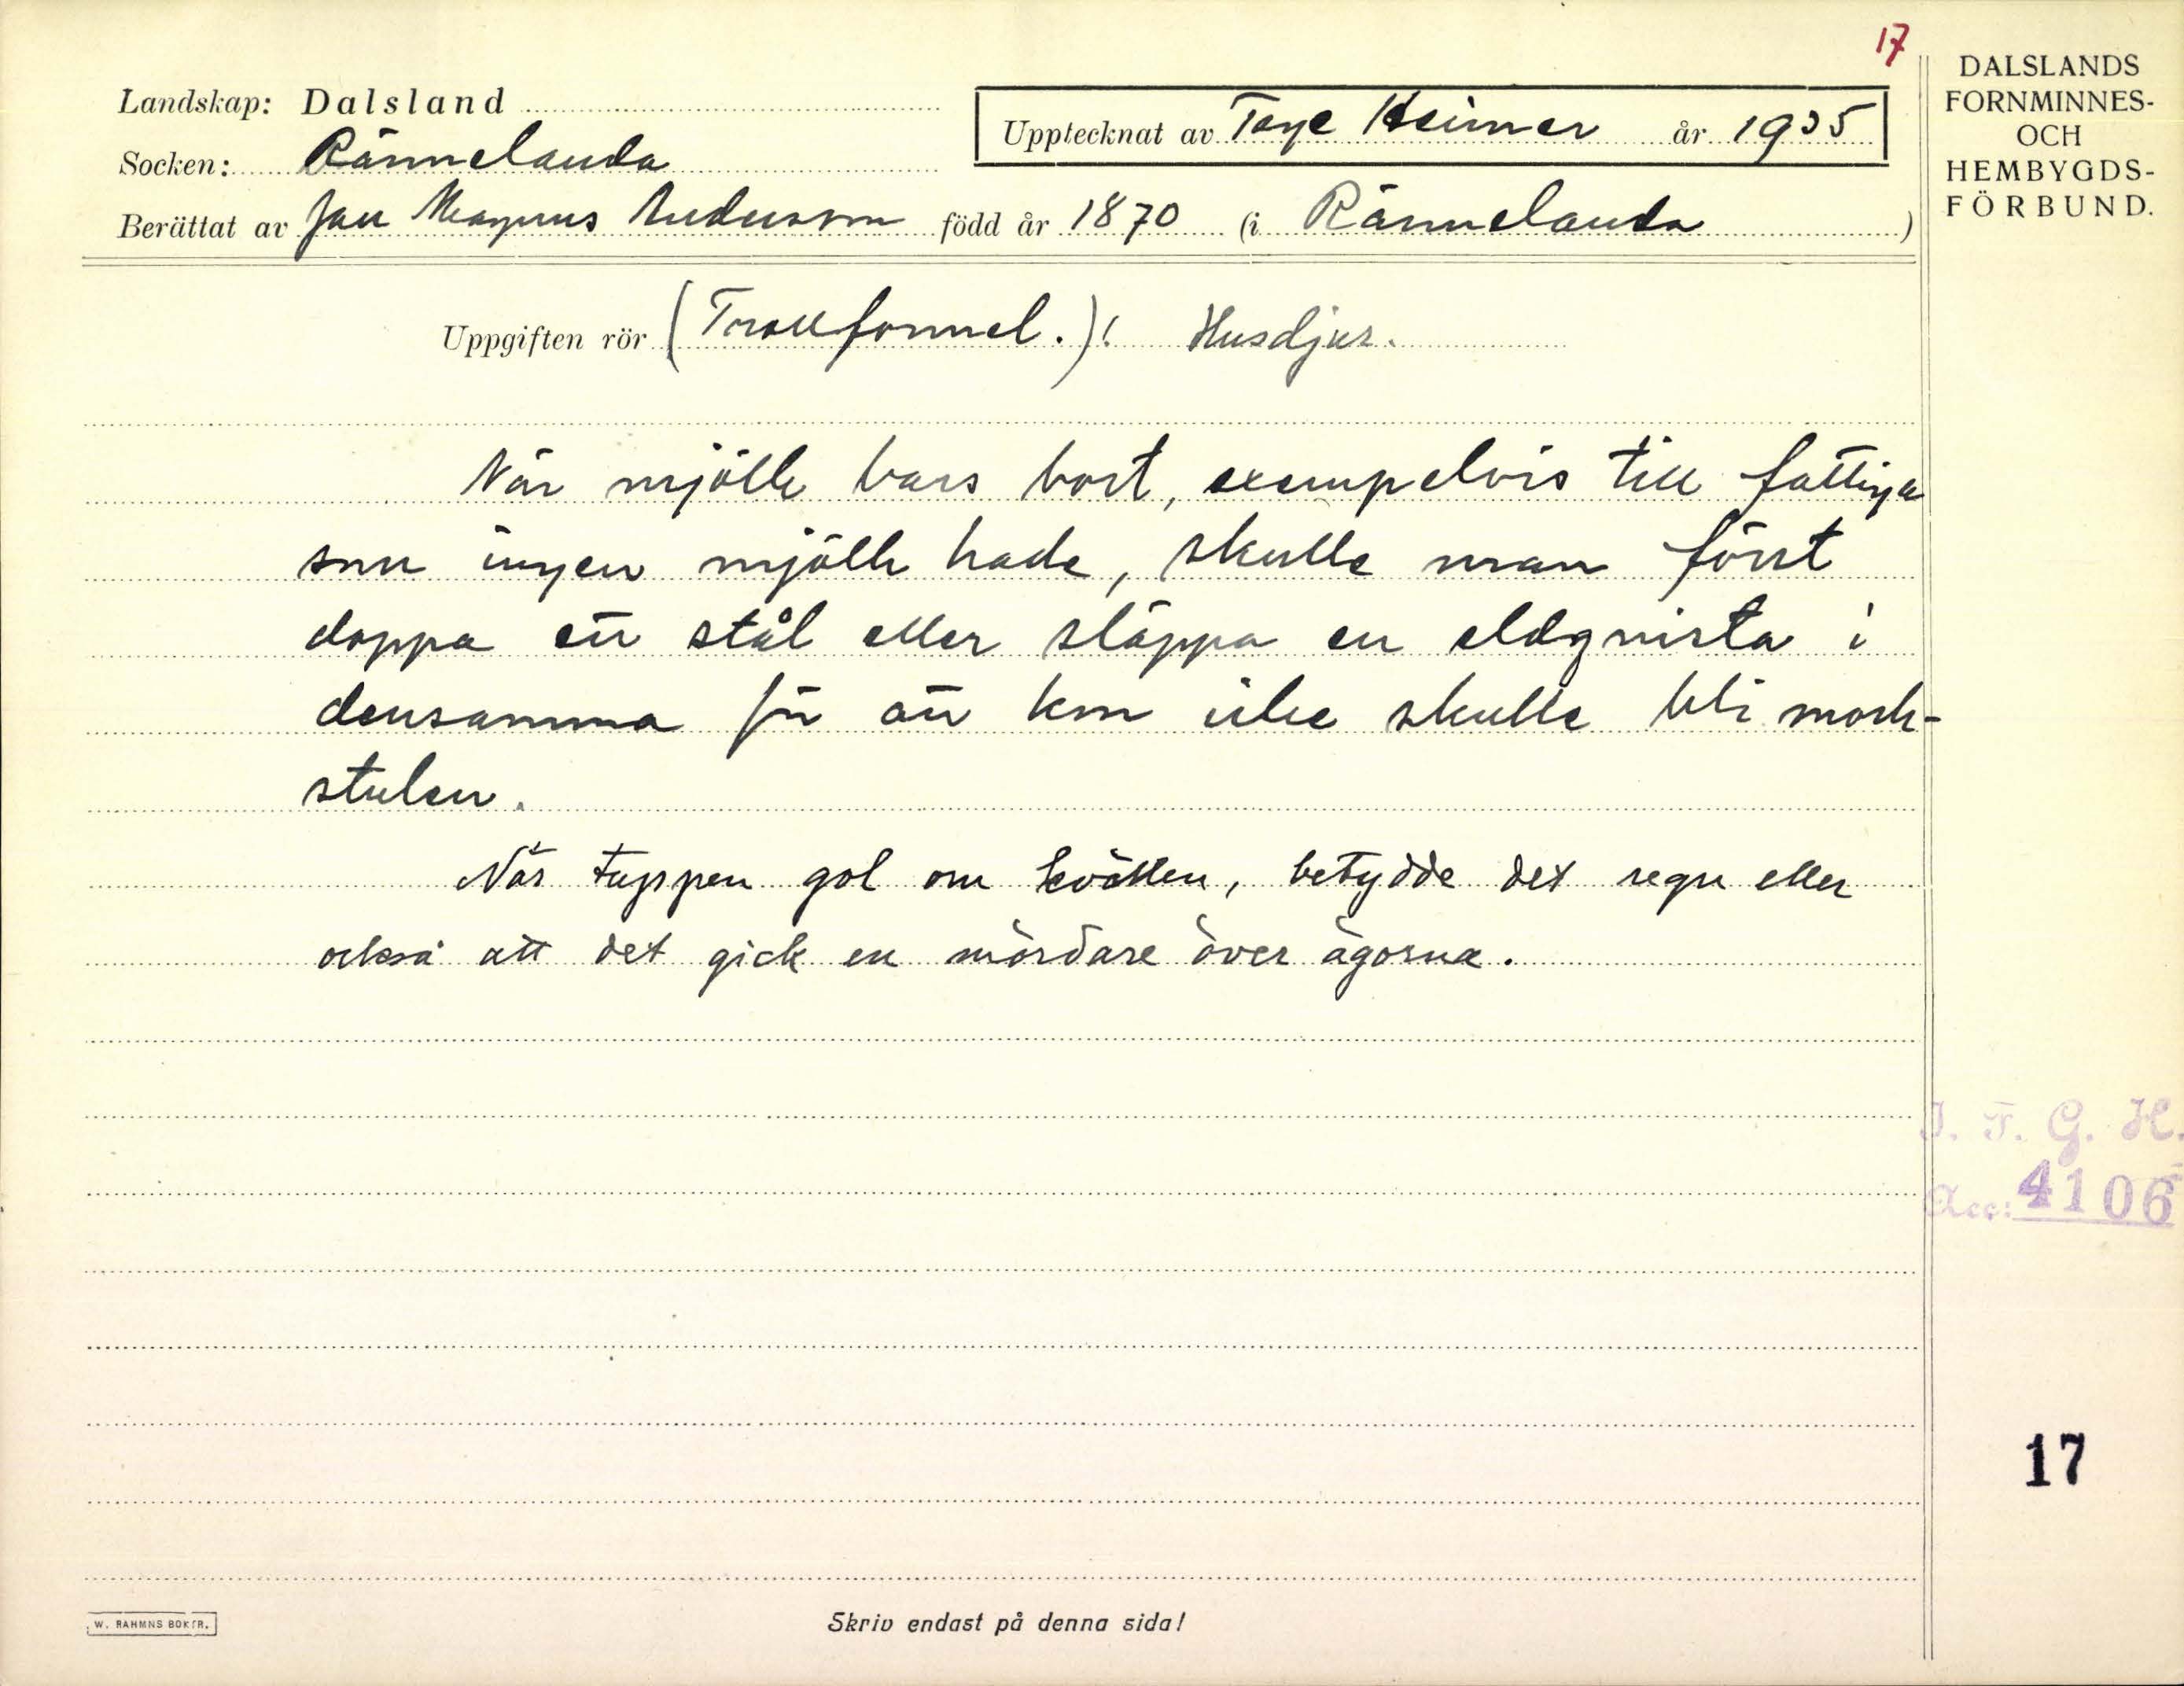 17
DALSLANDS
FORNMINNES-
OCH
HEMBYGDS-
FÖRBUND.
Landskap: Dalsland
Upptecknat av Tage Heimer år 1935
Socken: Rännelanda
Berättat av Jan Magnus Andersson född år 1870 (i Rännelanda)
Uppgiften rör (Trollformel.)! Husdjur.
När mjölk bars bort, exempelvis till fattiga
som ingen mjölk hade, skulle man först
doppa ett stål eller släppa en eldgnista i
densamma för att kon icke skulle bli mjölk-
stulen.
När tuppen gol om kvällen, betydde det regn eller
också att det gick en mördare över ägorna.
I. F. G. H.
Acc: 4106
17
W. RAHMNS BOKTR.
Skriv endast på denna sida!